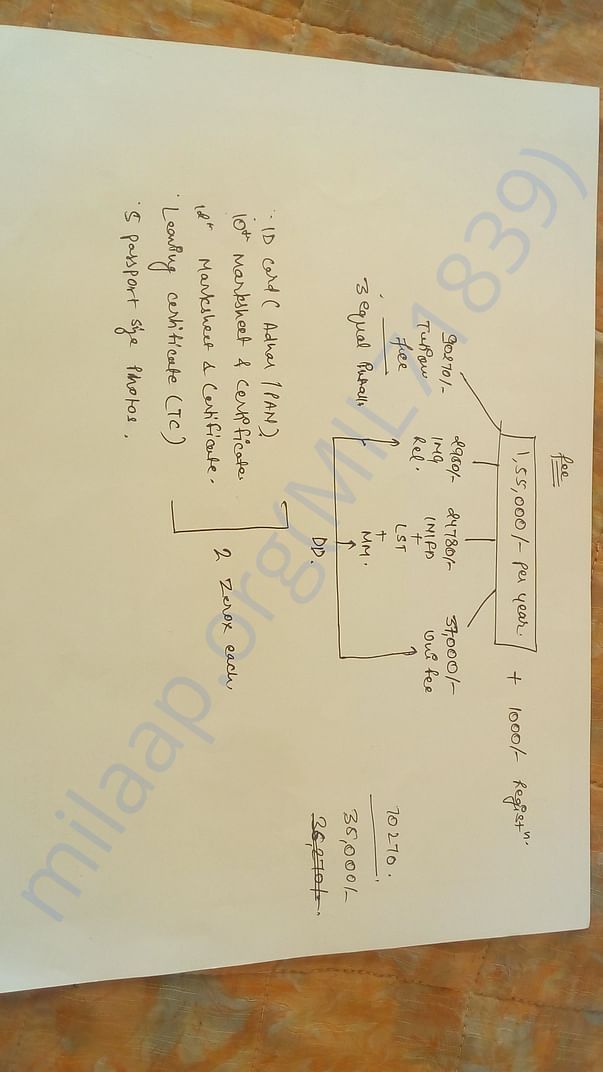 Fee
1,55,000/- per year. + 1000/- Registn.
90270/- 2950/- 24780/- 37,000/-
Tution Fee IMG Rel. INIFD + LST + MM. Uni fee
3 equal Installs
DD.
70270.
35,000/-
35,270/-.
· ID card ( Adhar / PAN)
· 10th Marksheet & Certificate
· 12th Marksheet & Certificate.
· Leaving certificate (TC)
· 5 passport size photos.
2 Zerox each
milaap.org(MIL71839)